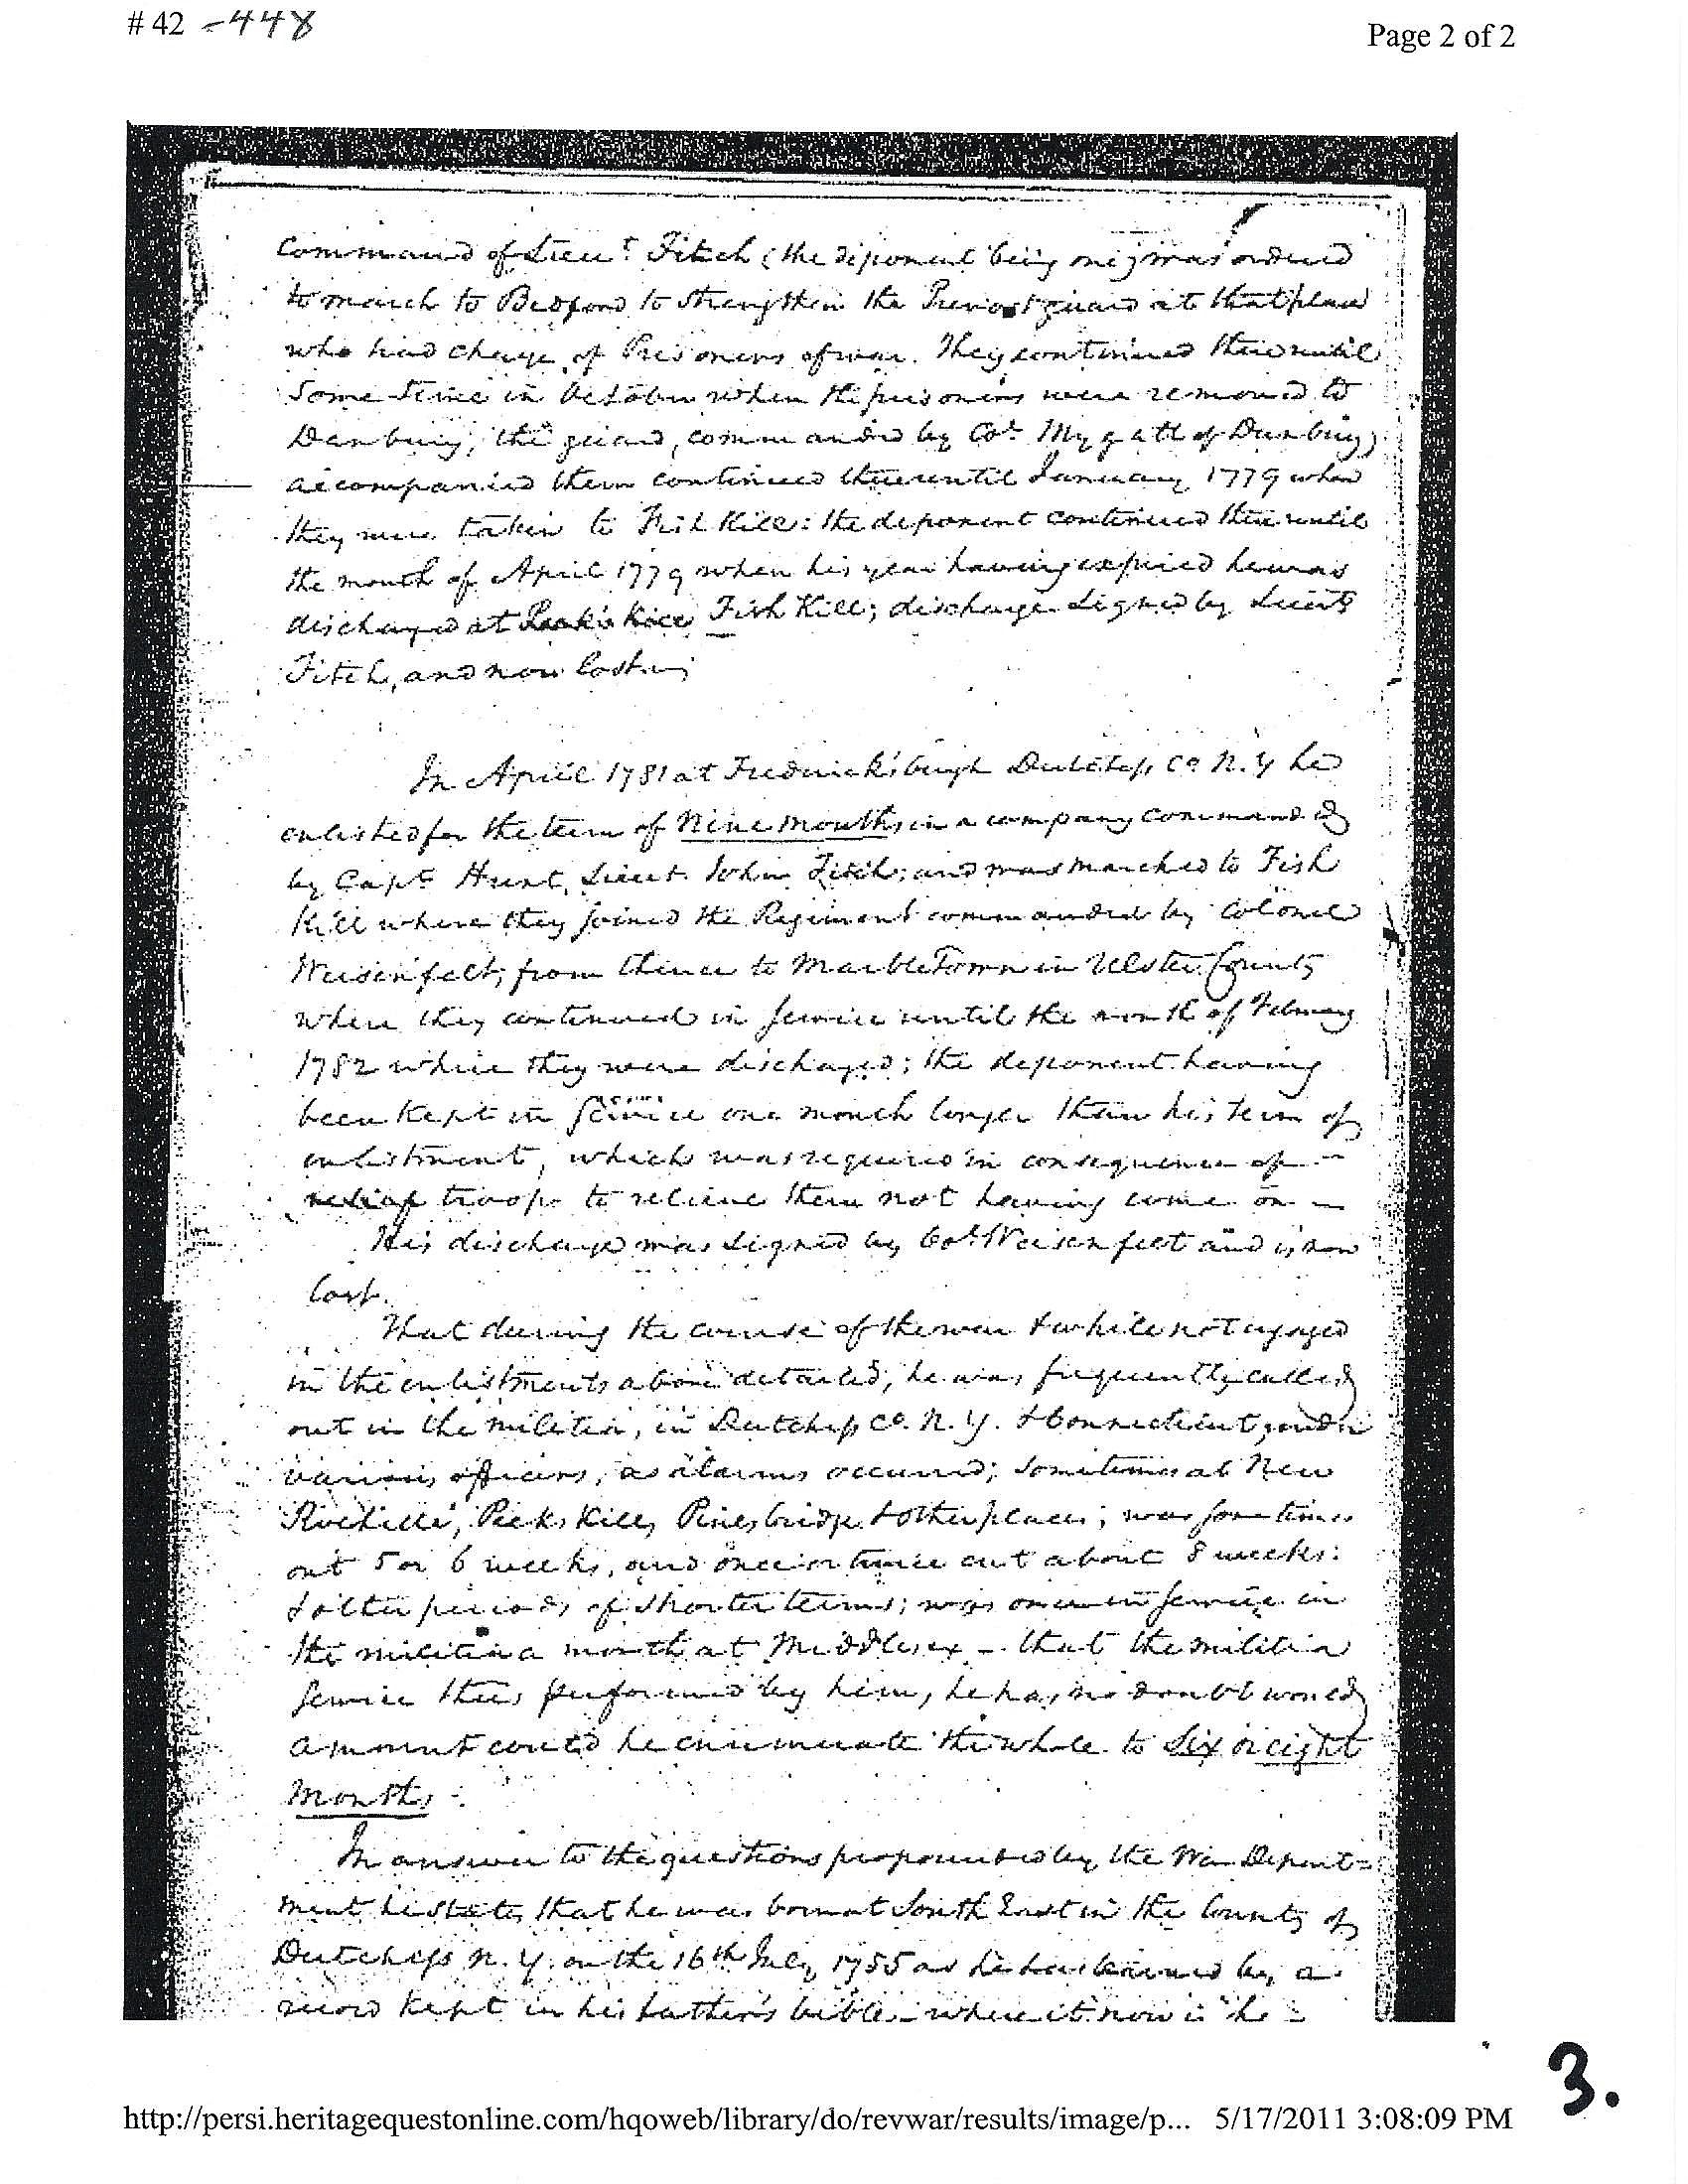 # 42 -448
Page 2 of 2
Command of Lieut. Fitch (the deponent being one) was ordered
to march to Bedford to strengthen the Prevost guard at that place
who had charge of Prisoners of war. They continued there until
Some time in October when the prisoners were removed to
Danbury; the guard, commanded by Col. Mygatt of Danbury)
accompanied them continued there until January 1779 when
they were taken to Fish Kill: the deponent continued there until
the month of April 1779 when his year having expired he was
discharged at Peeks Kill Fish Kill; discharge signed by Lieut
Fitch, and now lost
In April 1781 at Fredericksburgh Dutchess Co N.Y he
enlisted for the term of Nine months in a company commanded
by Capt. Hunt, Lieut. John Fitch; and was marched to Fish
Kill where they joined the Regiment commanded by Colonel
Weisenfelt; from thence to Marble Town in Ulster County
where they continued in service until the month of February
1782 where they were discharged; the deponent having
been kept in service one month longer than his term of
enlistment, which was required in consequence of
relief troops to relieve them not having come on
His discharge was signed by Col. Weisenfelt and is now
lost.
That during the course of the war & while not engaged
in the enlistments above detailed, he was frequently called
out in the militia, in Dutchess Co. N. Y. & Connecticut, under
various officers, as alarms occurred; sometimes at New
Rochelle, Peeks Kill, Pinesbridge & other places; was sometimes
out 5 or 6 weeks, and once or twice out about 8 weeks:
& other periods of shorter terms; was once in service in
the militia a month at Middlesex - that the militia
service thus performed by him, he has no doubt would
amount could he enumerate the whole to Six or eight
months -
In answer to the questions propounded by the War Depart=
ment he states that he was born at South East in the County of
Dutchess N. Y. on the 16th July 1755 as he has learned by a
record kept in his father's bible - where it now is he
3.
http://persi.heritagequestonline.com/hqoweb/library/do/revwar/results/image/p... 5/17/2011 3:08:09 PM